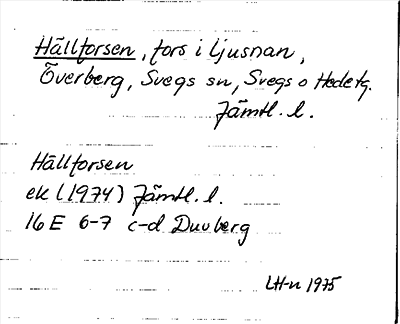 Hällforsen, fors i Ljusnan,
Överberg, Svegs sn, Svegs o Hede tg.
Jämtl. l.
Hällforsen
ek (1974) Jämtl. l.
16 E 6-7 c-d Duvberg
LH-n 1975